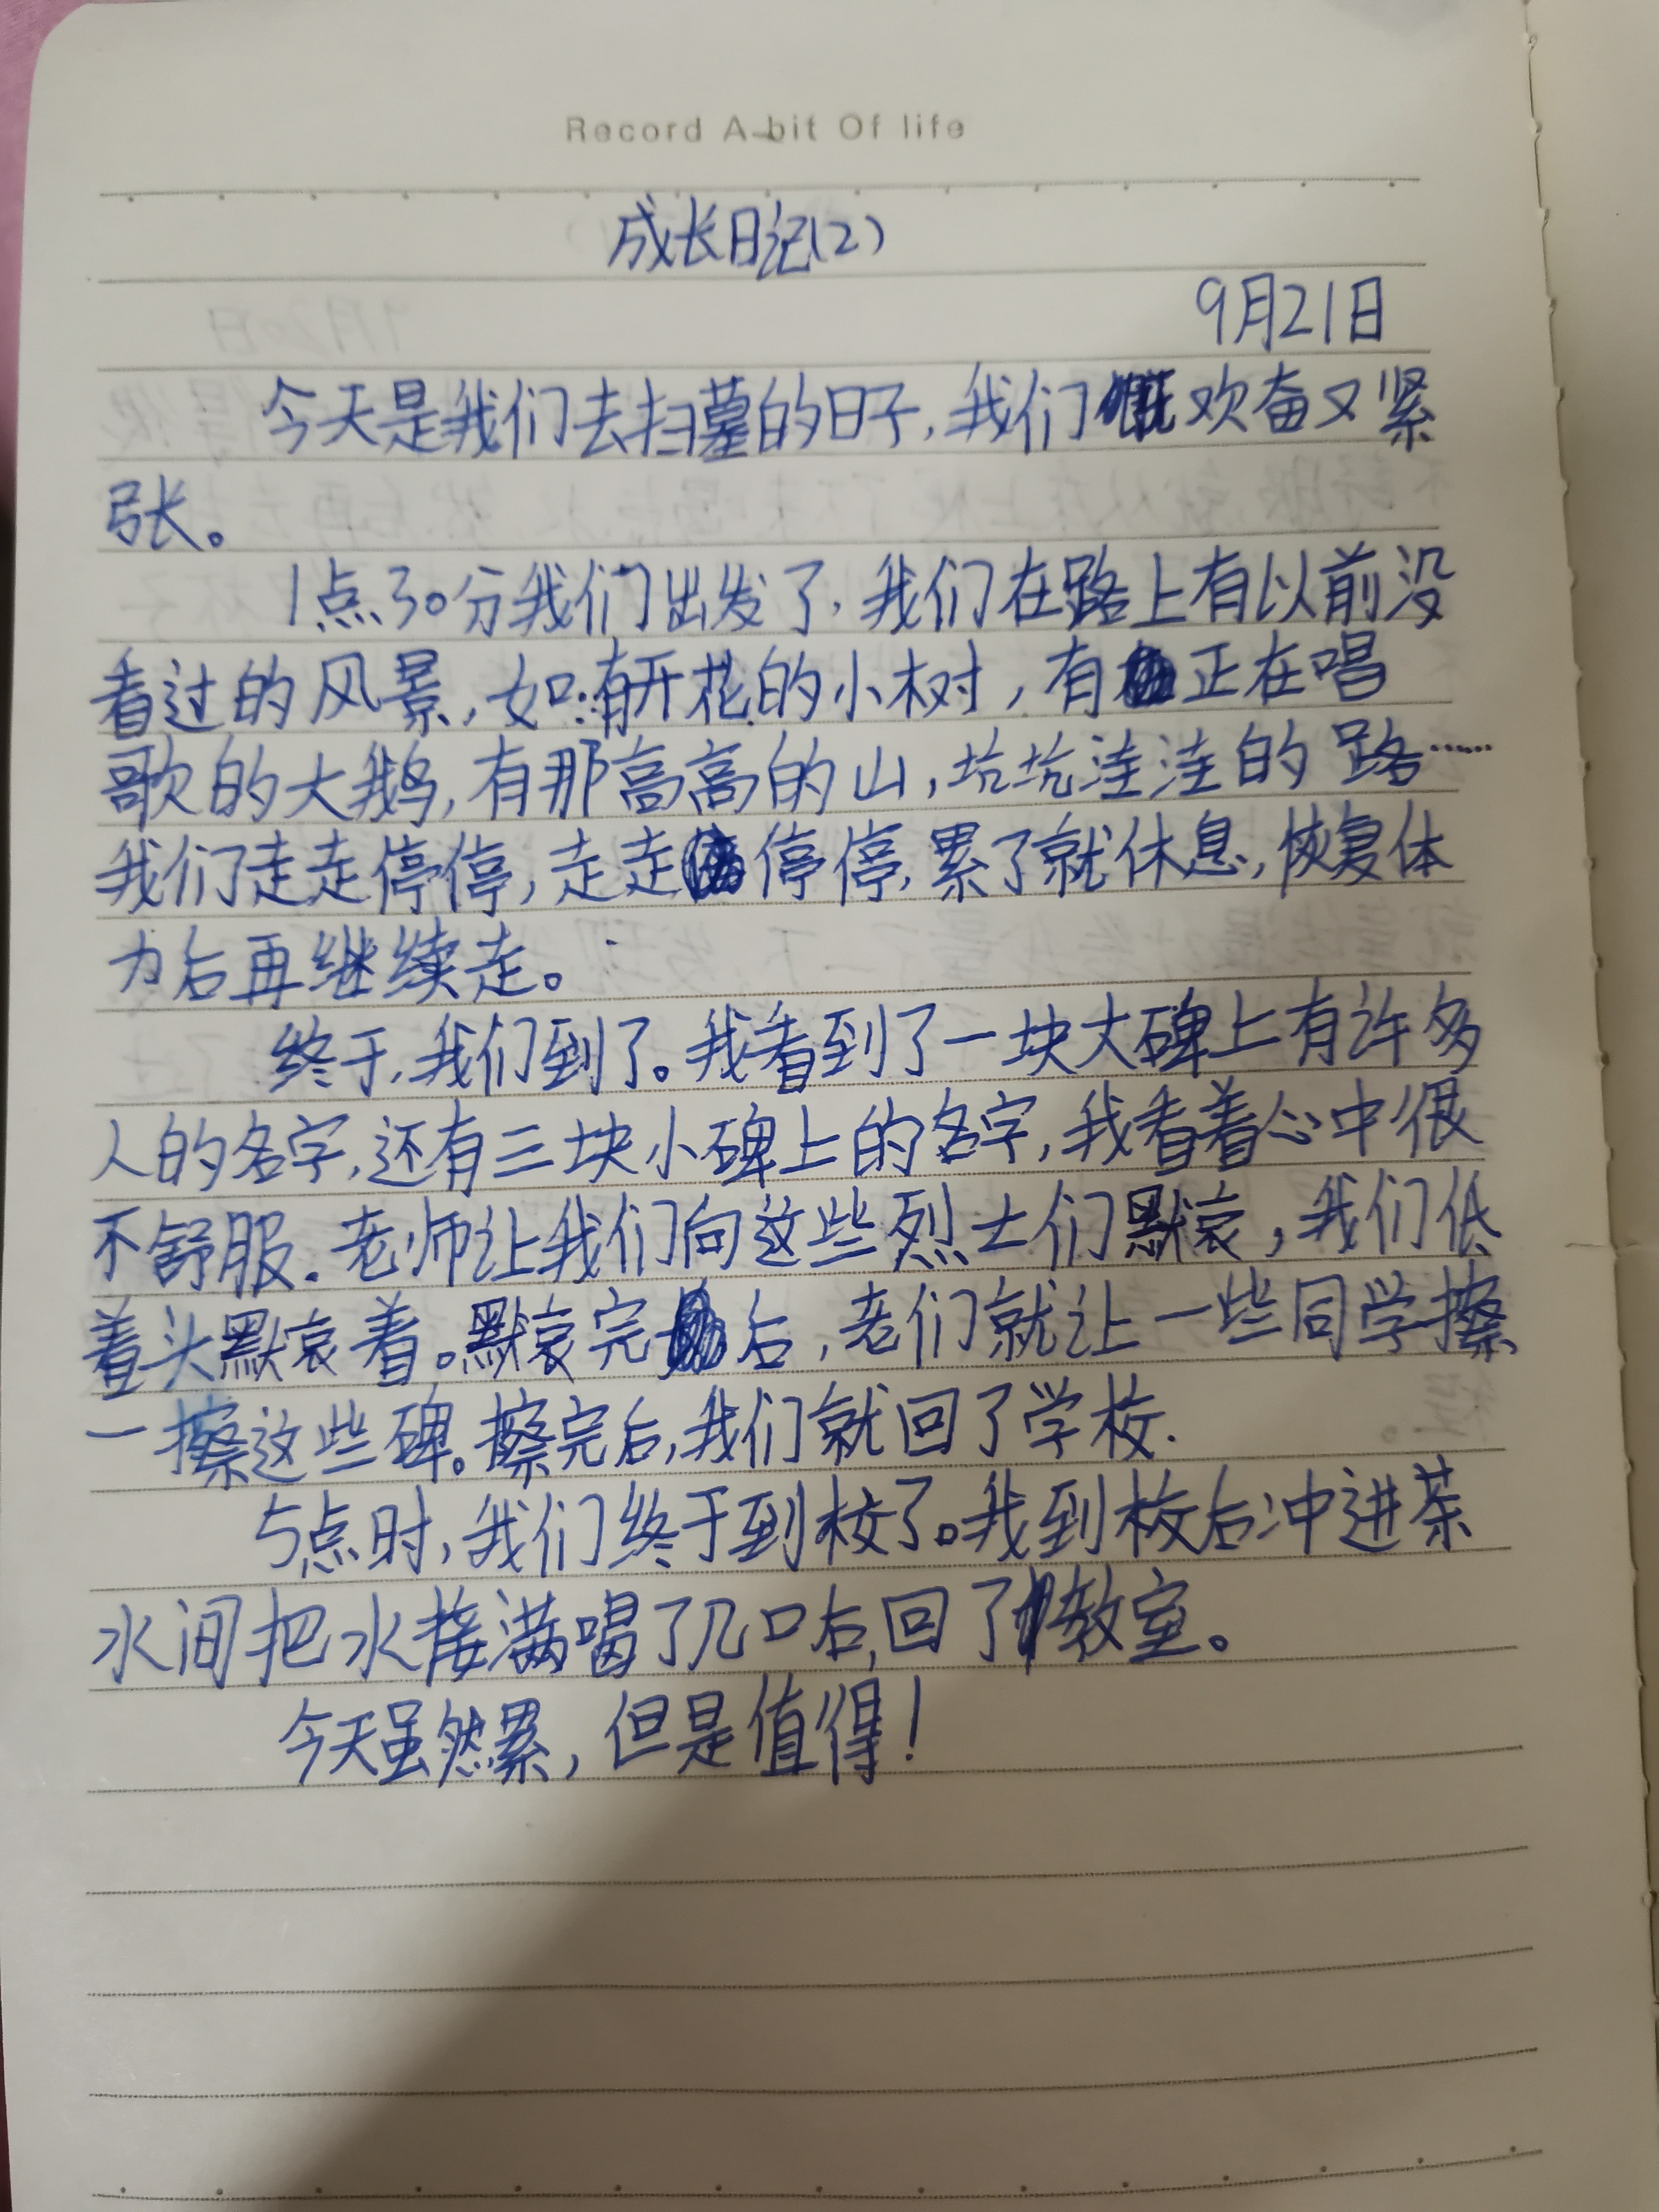 Record A bit Of life
成长日记(2)
9月21日
今天是我们去扫墓的日子,我们既欢奋又紧
张。
1点30分我们出发了,我们在路上有以前没
看过的风景,如:有开花的小树,有正在唱
歌的大鹅,有那高高的山,坑坑洼洼的路……
我们走走停停,走走停停,累了就休息,恢复体
力后再继续走。
终于,我们到了。我看到了一块大碑上有许多
人的名字,还有三块小碑上的名字,我看着心中很
不舒服.老师让我们向这些烈士们默哀,我们低
着头默哀着。默哀完后,老们就让一些同学擦
一擦这些碑。擦完后,我们就回了学校.
5点时,我们终于到校了。我到校后冲进茶
水间把水接满喝了几口后,回了教室。
今天虽然累,但是值得!